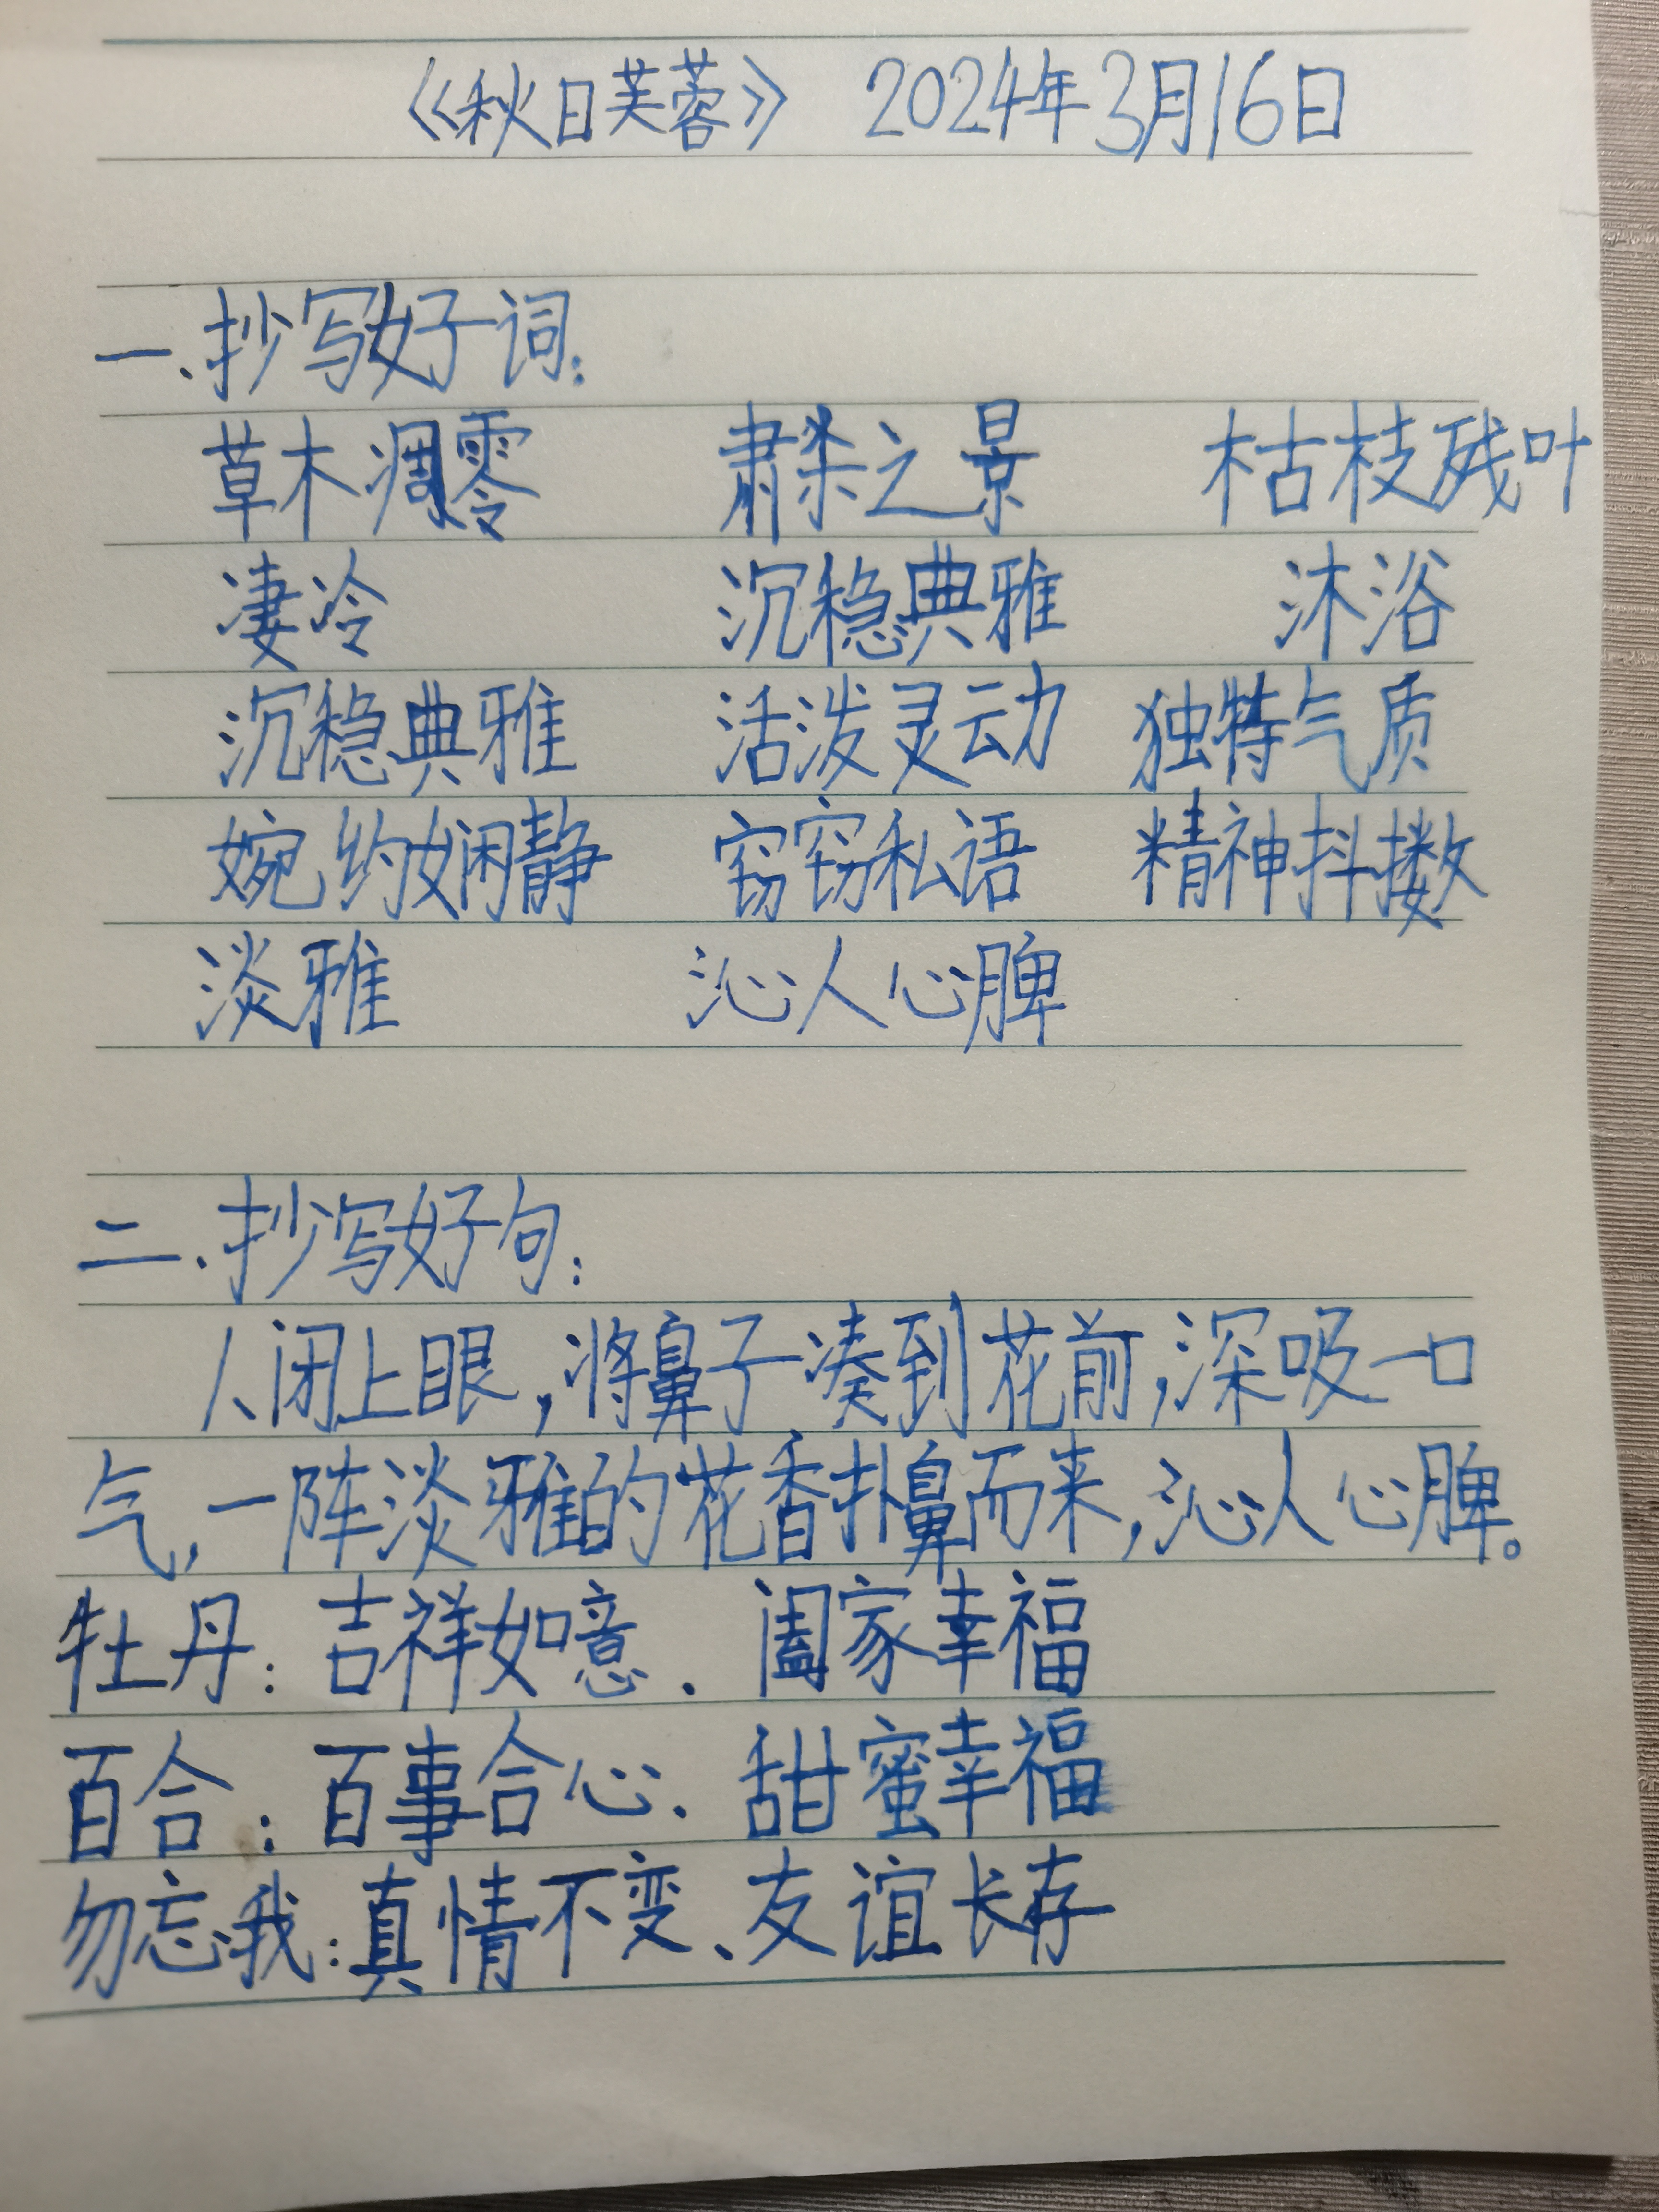 《秋日芙蓉》 2024年3月16日
一、抄写好词:
草木凋零 肃杀之景 枯枝残叶
凄冷 沉稳典雅 沐浴
沉稳典雅 活泼灵动 独特气质
婉约娴静 窃窃私语 精神抖擞
淡雅 沁人心脾
二、抄写好句:
1、闭上眼,将鼻子凑到花前,深吸一口
气,一阵淡雅的花香扑鼻而来,沁人心脾。
牡丹:吉祥如意、阖家幸福
百合:百事合心、甜蜜幸福
勿忘我:真情不变、友谊长存